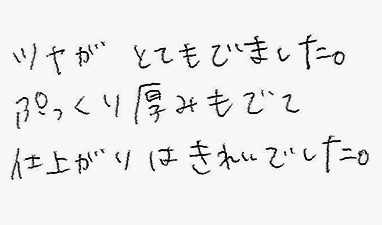 ツヤが とてもでました。
ぷっくり厚みもでて
仕上がりはきれいでした。